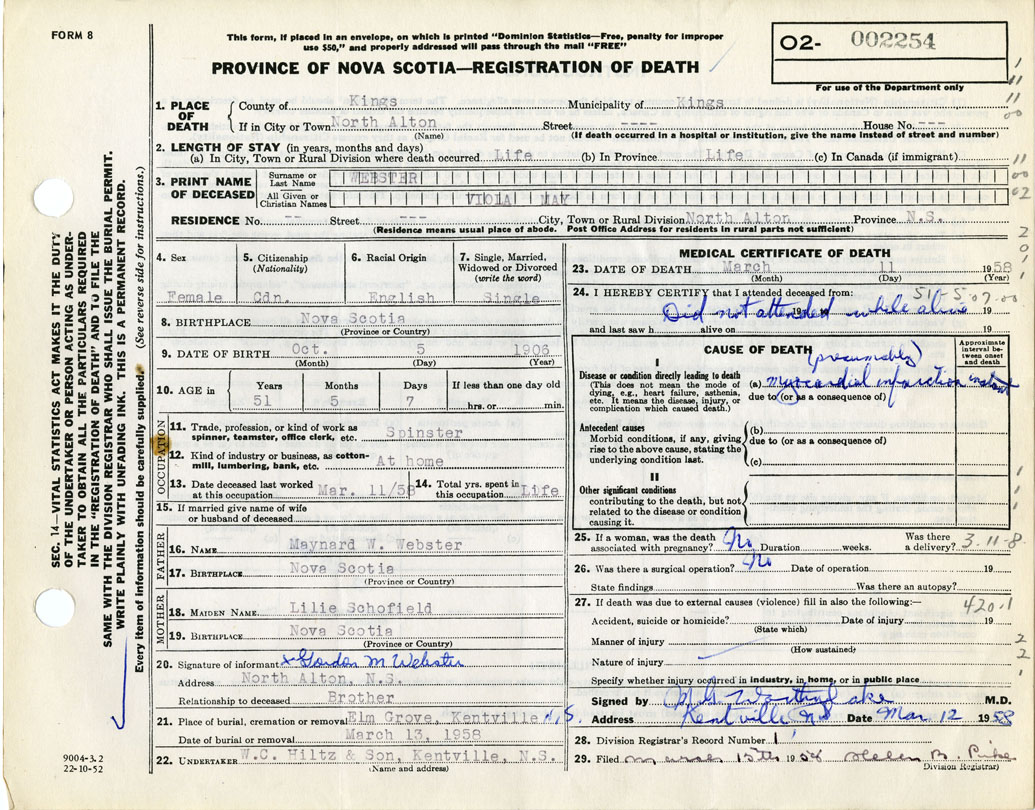 FORM 8
This form, if placed in an envelope, on which is printed "Dominion Statistics—Free, penalty for improper
use $50," and properly addressed will pass through the mail "FREE"
PROVINCE OF NOVA SCOTIA—REGISTRATION OF DEATH
O2- 002254
For use of the Department only
SEC. 14—VITAL STATISTICS ACT MAKES IT THE DUTY
OF THE UNDERTAKER OR PERSON ACTING AS UNDER-
TAKER TO OBTAIN ALL THE PARTICULARS REQUIRED
IN THE "REGISTRATION OF DEATH" AND TO FILE THE
SAME WITH THE DIVISION REGISTRAR WHO SHALL ISSUE THE BURIAL PERMIT.
WRITE PLAINLY WITH UNFADING INK. THIS IS A PERMANENT RECORD.
Every item of information should be carefully supplied. (See reverse side for instructions.)
1. PLACE OF DEATH
County of Kings Municipality of Kings
If in City or Town North Alton Street ---- House No. ---
(Name) (If death occurred in a hospital or institution, give the name instead of street and number)
2. LENGTH OF STAY (in years, months and days)
(a) In City, Town or Rural Division where death occurred Life (b) In Province Life (c) In Canada (if immigrant)
3. PRINT NAME OF DECEASED
Surname or Last Name WEBSTER
All Given or Christian Names VIOLA MAY
RESIDENCE No. -- Street --- City, Town or Rural Division North Alton Province N.S.
(Residence means usual place of abode. Post Office Address for residents in rural parts not sufficient)
4. Sex 5. Citizenship (Nationality) 6. Racial Origin 7. Single, Married, Widowed or Divorced (write the word)
Female Cdn. English Single
8. BIRTHPLACE Nova Scotia
(Province or Country)
9. DATE OF BIRTH Oct. 5 1906
(Month) (Day) (Year)
10. AGE in Years Months Days If less than one day old
51 5 7 hrs. or min.
OCCUPATION
11. Trade, profession, or kind of work as
spinner, teamster, office clerk, etc. Spinster
12. Kind of industry or business, as cotton-
mill, lumbering, bank, etc. At home
13. Date deceased last worked
at this occupation Mar. 11/58
14. Total yrs. spent in
this occupation Life
15. If married give name of wife
or husband of deceased
FATHER
16. NAME Maynard W. Webster
17. BIRTHPLACE Nova Scotia
(Province or Country)
MOTHER
18. MAIDEN NAME Lilie Schofield
19. BIRTHPLACE Nova Scotia
(Province or Country)
20. Signature of informant x Gordon M Webster
Address North Alton, N.S.
Relationship to deceased Brother
21. Place of burial, cremation or removal Elm Grove, Kentville N.S.
Date of burial or removal March 13, 1958
22. UNDERTAKER W.C. Hiltz & Son, Kentville, N.S.
(Name and address)
9004-3.2
22-10-52
MEDICAL CERTIFICATE OF DEATH
23. DATE OF DEATH March 11 1958
(Month) (Day) (Year)
24. I HEREBY CERTIFY that I attended deceased from:
Did not attended while alive 19
and last saw h alive on 19
CAUSE OF DEATH
Approximate interval between onset and death
(presumably)
I
Disease or condition directly leading to death
(This does not mean the mode of
dying, e.g., heart failure, asthenia,
etc. It means the disease, injury, or
complication which caused death.)
(a) myocardial infarction instant
due to (or as a consequence of)
Antecedent causes
Morbid conditions, if any, giving
rise to the above cause, stating the
underlying condition last.
(b)
due to (or as a consequence of)
(c)
II
Other significant conditions
contributing to the death, but not
related to the disease or condition
causing it.
25. If a woman, was the death
associated with pregnancy? No Duration weeks. Was there
a delivery? 3-11-8
26. Was there a surgical operation? No Date of operation 19
State findings Was there an autopsy?
27. If death was due to external causes (violence) fill in also the following:—
420.1
Accident, suicide or homicide? Date of injury 19
(State which)
Manner of injury
(How sustained)
Nature of injury
Specify whether injury occurred in industry, in home, or in public place
Signed by M.D.
Address Kentville NS Date Mar 12 1958
28. Division Registrar's Record Number 1
29. Filed March 15th 1958 Helen B.
Division Registrar)